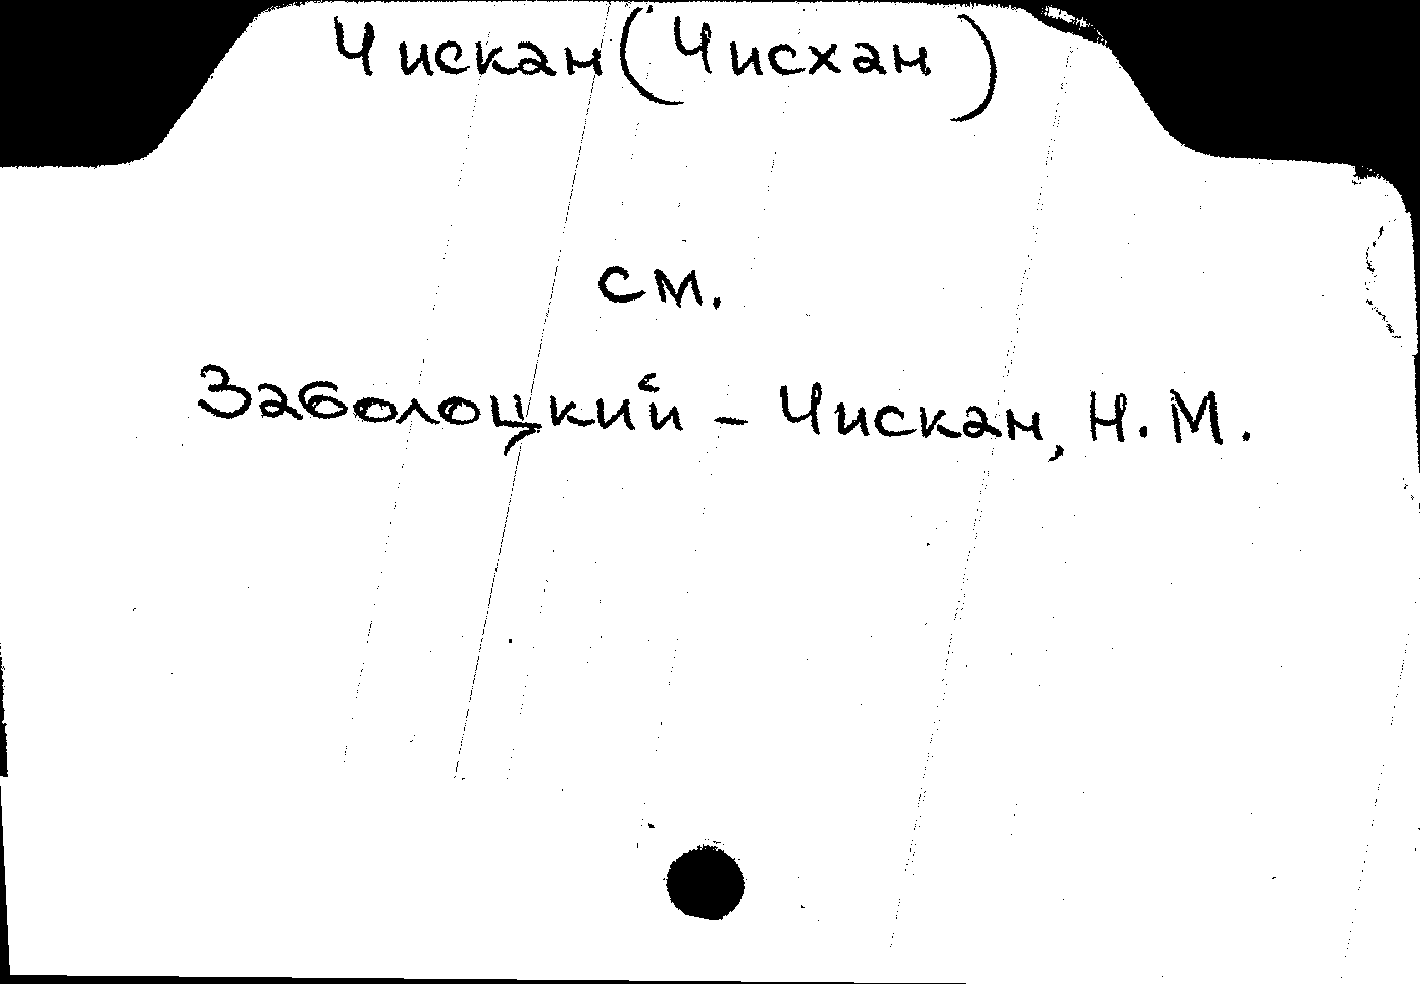 Чискан (Чисхан)
см.
Заболоцкий - Чискан, Н. М.